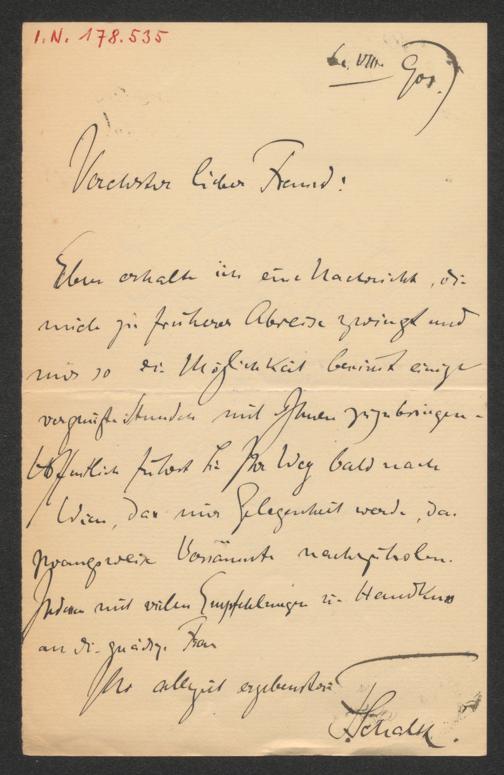 I.N. 178.535
6. VIII. 901.
Verehrter lieber Freund!
Eben erhalte ich eine Nachricht, die
mich zu früherer Abreise zwingt und
mir so die Möglichkeit benimt einige
vergnügte Stunden mit Ihnen zuzubringen.
Hoffentlich führt Sie Ihr Weg bald nach
Wien, daß mir Gelegenheit werde, das
zwangsweise Versäumte nachzuholen.
Indem mit vielen Empfehlungen u. Handkuss
an die gnädige Frau
Ihr allzeit ergebenster
FSchalk.